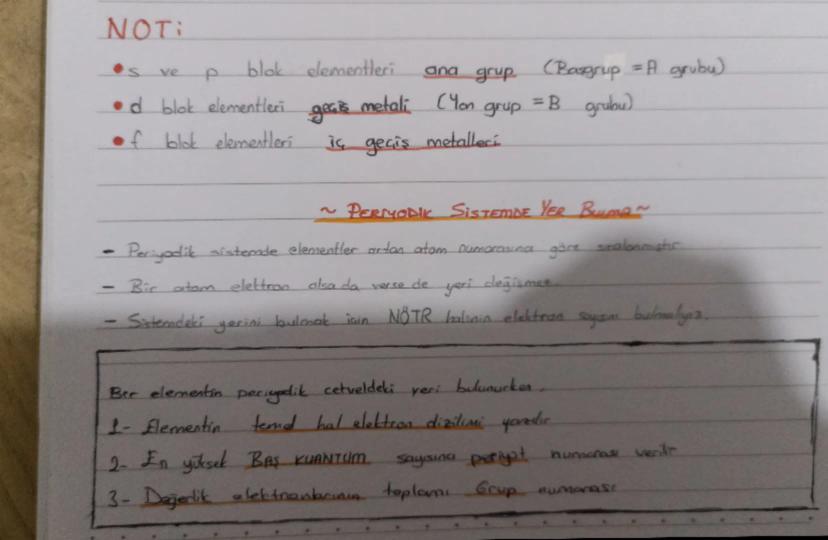 NOT:
• s ve p blok elementleri ana grup (Başgrup = A grubu)
• d blok elementleri geçiş metali (Yan grup = B grubu)
• f blok elementleri iç geçiş metalleri
~ PERİYODİK SİSTEMDE YER BULMA ~
- Periyodik sistemde elementler artan atom numarasına göre sıralanmıştır
- Bir atom elektron alsada verse de yeri değişmez.
- Sistemdeki yerini bulmak için NÖTR halinin elektron sayısını bulmalıyız.
Bir elementin periyodik cetveldeki yeri bulunurken.
1- Elementin temel hal elektron dizilimi yazılır
2- En yüksek BAŞ KUANTUM sayısına periyot numarası verilir
3- Değerlik elektronlarının toplamı Grup numarası